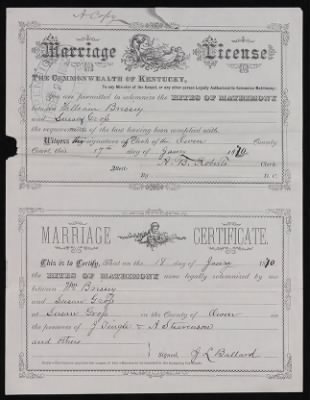 A Copy
Marriage License
THE COMMONWEALTH OF KENTUCKY,
To any Minister of the Gospel, or any other person Legally Authorized to Solemnize Matrimony:
You are permitted to solemnize the RITES OF MATRIMONY
between William
and Susan
the requirements of the law having been complied with.
Witness my signature as Clerk of the Owen County
Court, this 17th day of Jany 1870
H. B. Roberts Clerk.
Attest
By D. C.
MARRIAGE CERTIFICATE.
This is to Certify, That on the 18 day of Jany 1870
the RITES OF MATRIMONY were legally solemnized by me
between Wm
and Susan
at Susan in the County of Owen in
the presence of J & A Stevenson
and others
Signed, J L Ballard